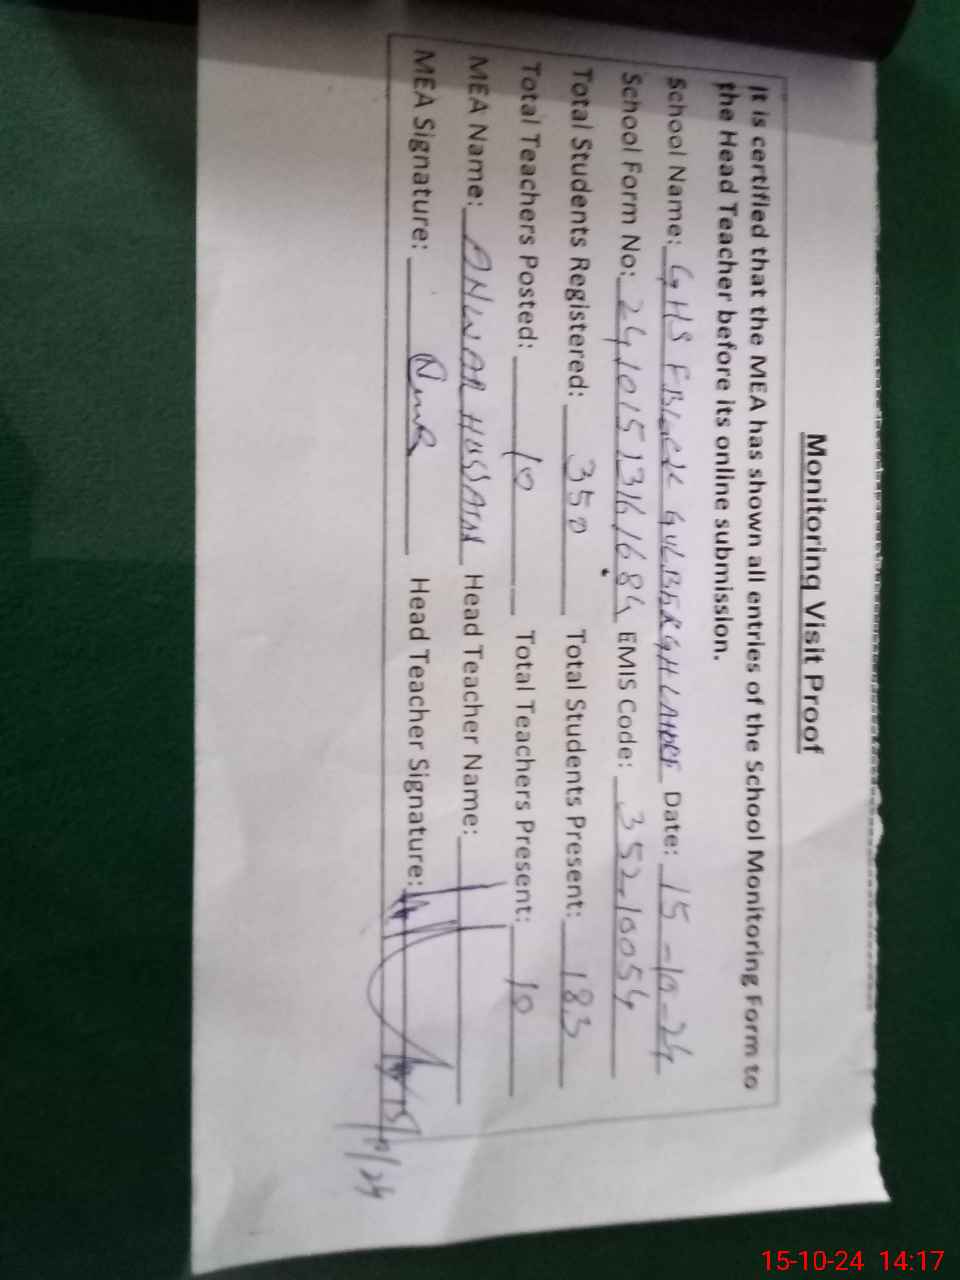 Monitoring Visit Proof
It is certified that the MEA has shown all entries of the School Monitoring Form to
the Head Teacher before its online submission.
School Name: GHS F BLOCK GULBERGH LAHORE Date: 15-10-24
School Form No: EMIS Code: 35210054
Total Students Registered: 350 Total Students Present: 183
Total Teachers Posted: 10 Total Teachers Present: 10
MEA Name: ANWAR HUSSAIN Head Teacher Name:
MEA Signature: Head Teacher Signature:
15/10/24
15-10-24 14:17